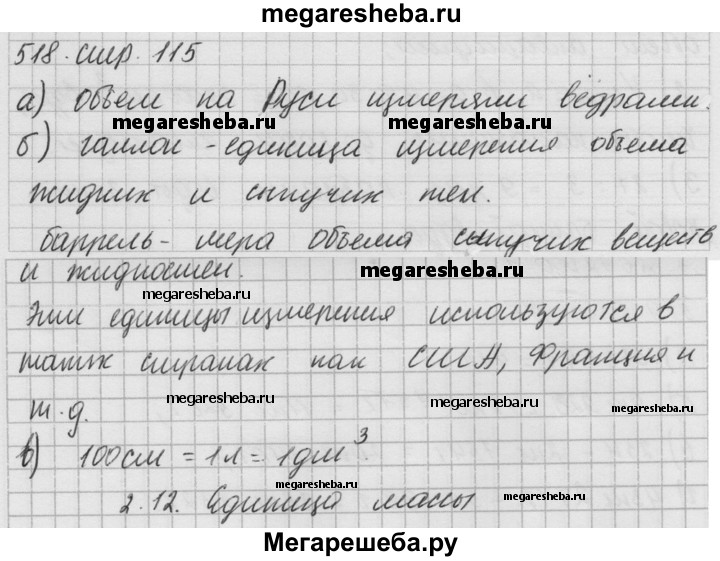 megaresheba.ru
518. стр. 115
а) Объем на Руси измеряли вёдрами.
megaresheba.ru megaresheba.ru
б) галлон - единица измерения объема
жидких и сыпучих тел.
баррель - мера объема сыпучих веществ
и жидкостей.
megaresheba.ru
megaresheba.ru
Эти единицы измерения используются в
таких странах как США, Франция и
т.д.
megaresheba.ru megaresheba.ru
в) 100см = 1л = 1дм³.
megaresheba.ru
2.12. Единица массы
megaresheba.ru
Мегарешеба.ру